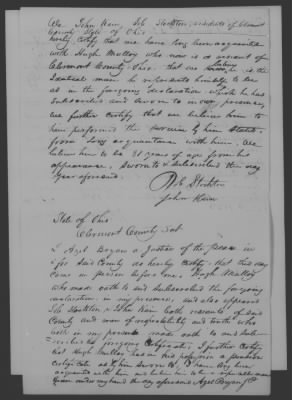 We John Hair, Job Stockton, residents of Clermont
County State of Ohio
hereby certify that we have long been acquainted
with Hugh Mulloy who now is a resident of
Clermont County, Ohio. that we believe he is the
Identical man he represents himself to be
as in the foregoing declaration which he has
Subscribed and Sworn to in our presence,
we further certify that we believe him to
have performed the services by him stated
from long acquaintance with him. We
believe him to be 81 years of age from his
appearance, Sworn to & Subscribed this day
& year aforesaid.
Job Stockton
John Hair
State of Ohio
Clermont County Sct.
I Azel Bryan a Justice of the peace in
& for Said County do hereby certify that this day
came in person before me Hugh Mulloy
who made oath to and Subscribed the foregoing
declaration, in my presence, and also appeared
Job Stockton & John Hair both residents of Said
County and men of respectability and truth who
both in my presence made oath to and
Subscribed foregoing Certificate, I further Certify
that Hugh Mulloy has in his possession a pension
certificate as him Sworn to. I have long been
acquainted with him and believe him to be a
given under my hand the day aforesaid Azel Bryan J.P.